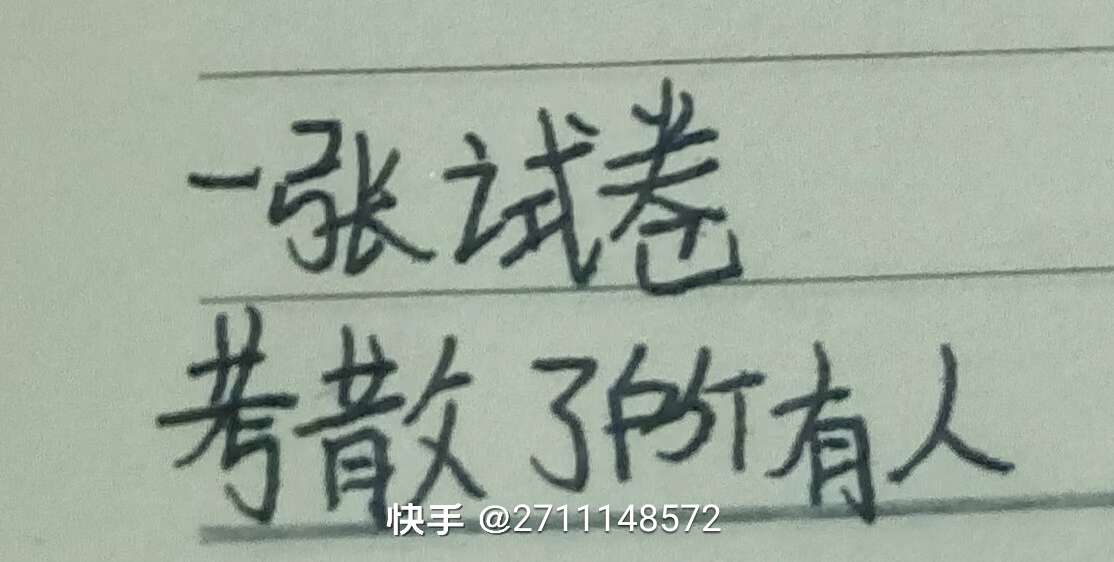 一张试卷
考散了所有人
快手 @2711148572